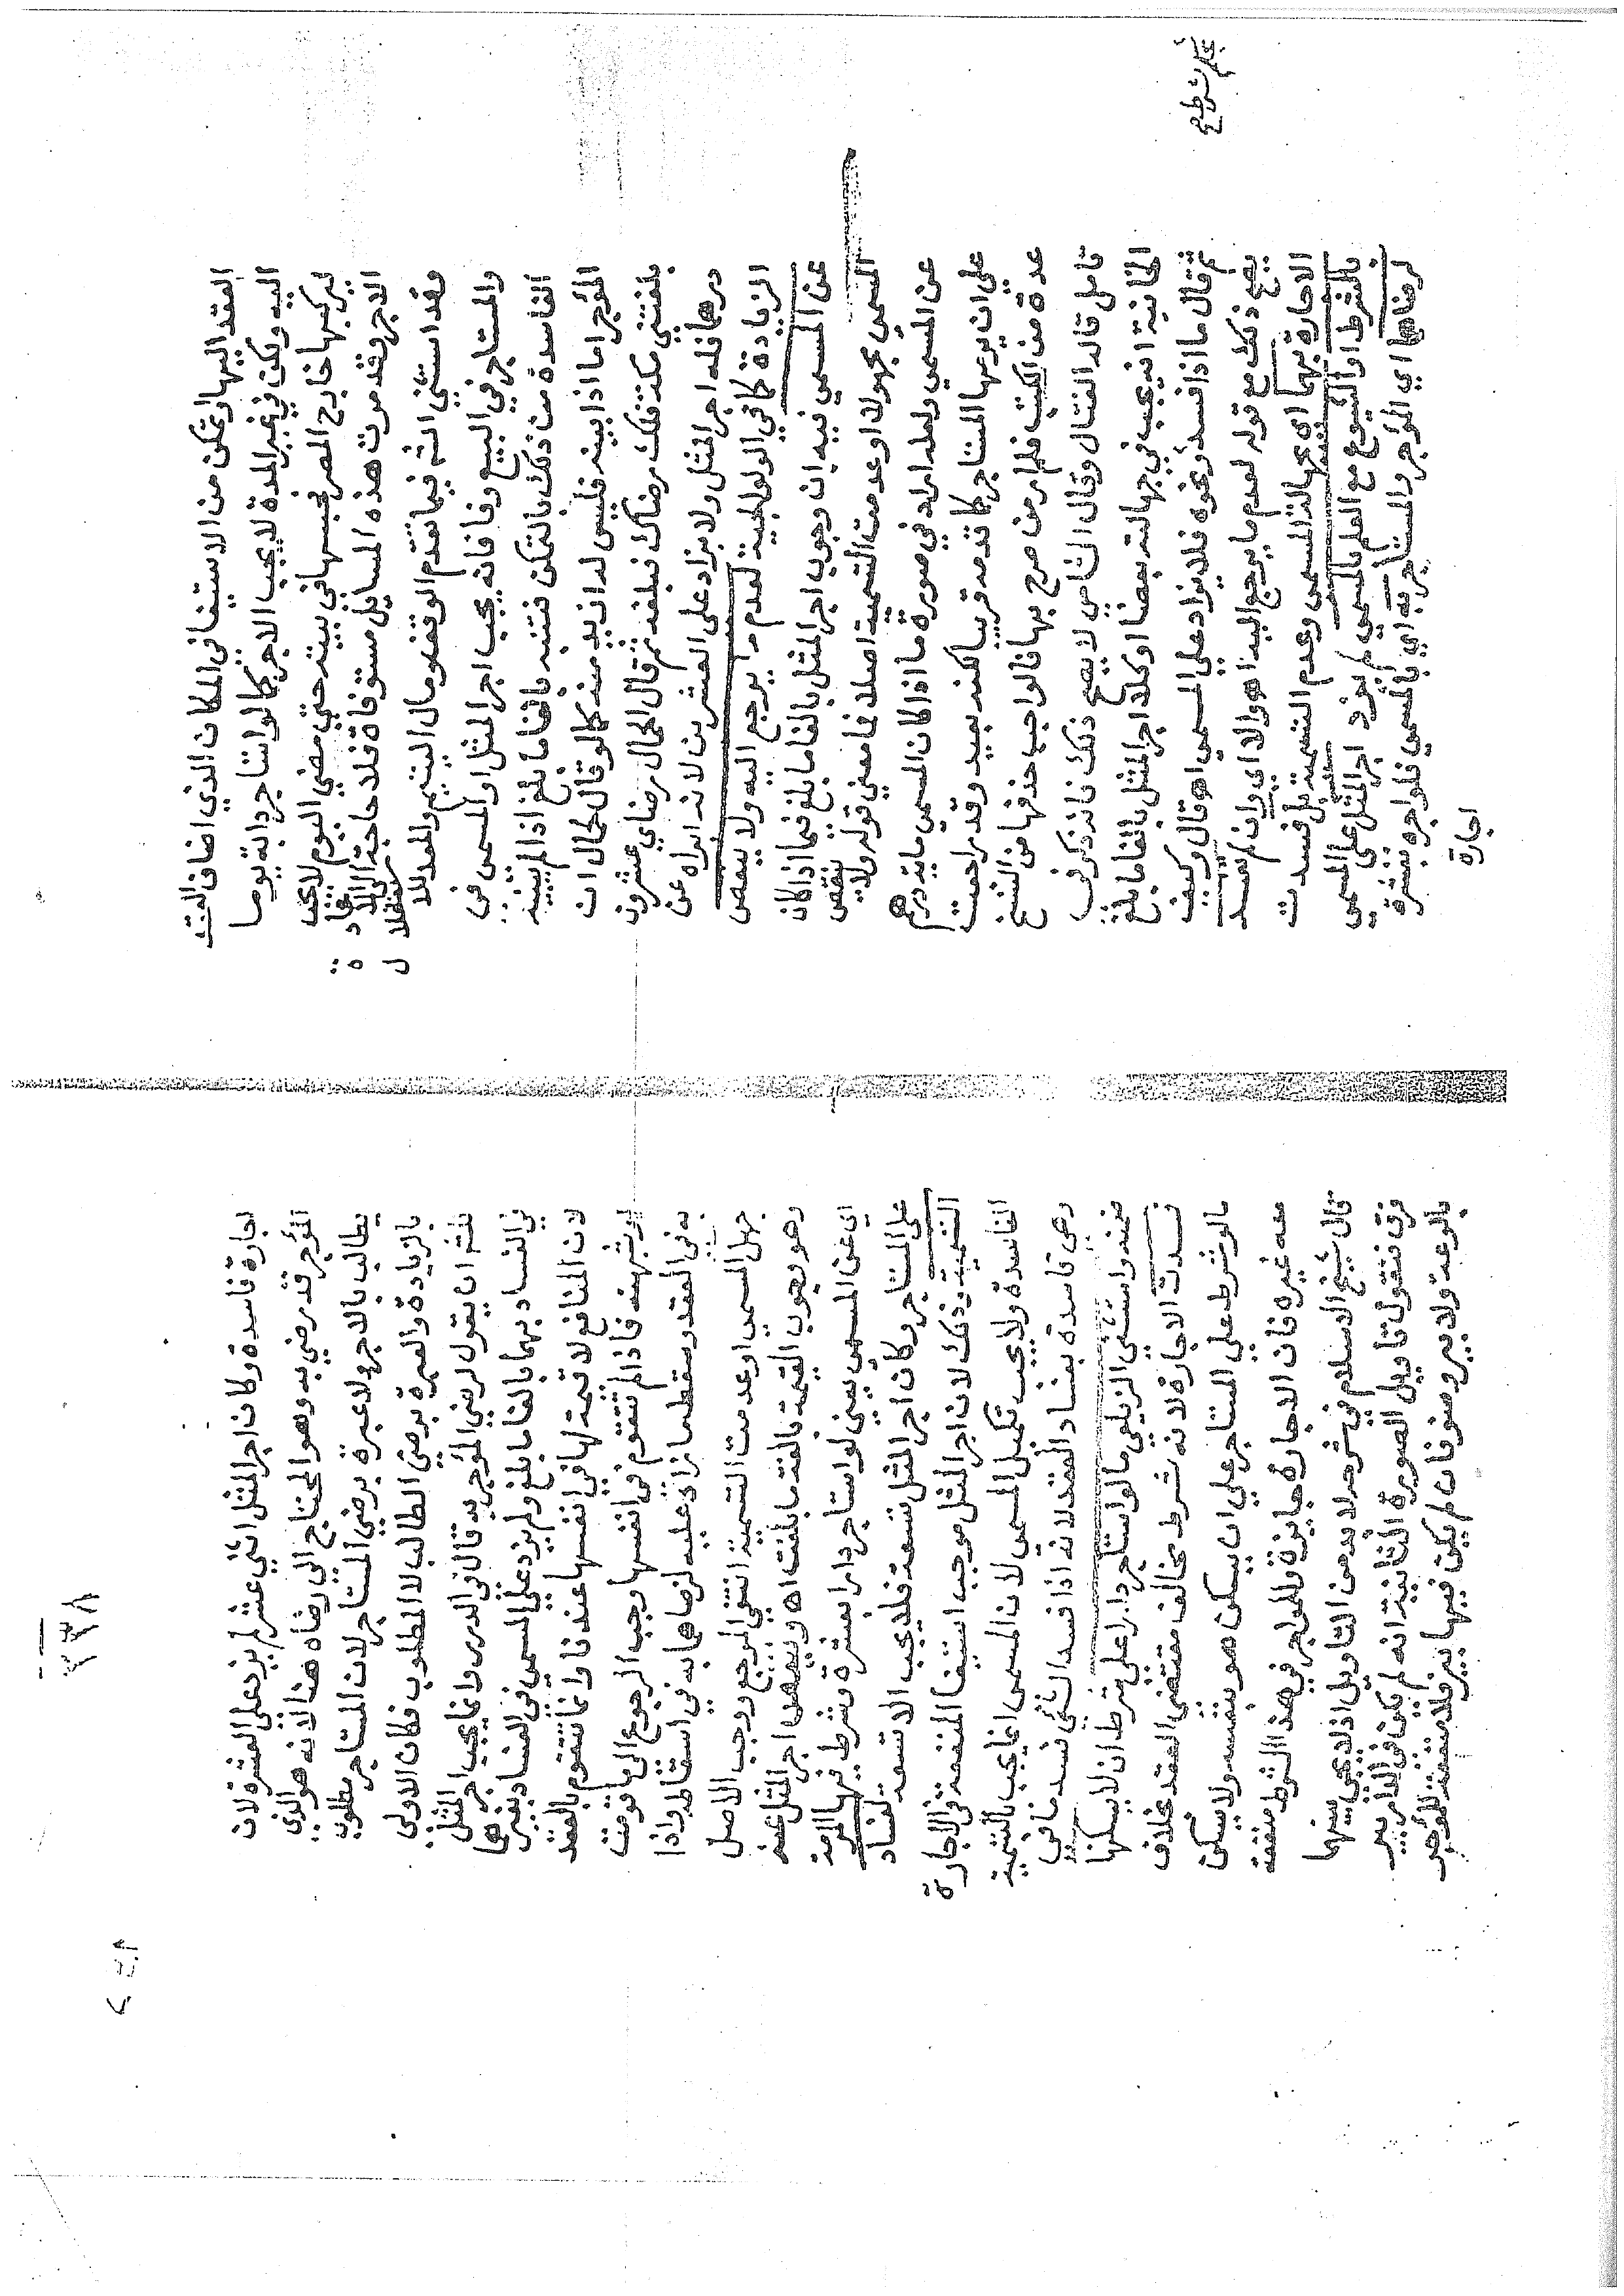 العقد اليها او تمكن من الاستيفا في المكان الذي اضاف العقد
اليه ولكن في غير المدة لا يجب الاجر كما لو استاجر دابة يوما
ليركبها خارج المصر فحبسها في بيته حتي مضي اليوم لا يجب
الاجر وقد مرت هذه المسايل مستوفاة فلا حاجة الي الاعادة
وقد استثني الشه فيما تقدم الوقف ومال اليتيم والمعد للاستغلال
والمستاجر في البيع وفا فانه يجب اجر المثل او المسمى في
الفاسدة منا ذلك بالتمكن فتنبه بالغا ما بلغ اذا لم يبينه
المؤجر اما اذا بينه فليس له ان يزيد منه كما لو قال لحمال ان
بلغتني مكة فلك رضاك فبلغه ثم قال الحمال رضاي عشرون
درهما فله اجر المثل ولا يزاد على العشرين لانه ابراه عن
الزيادة كما في الولوالجية لعدم ما يرجع اليه ولا ينقص
عن المسمى فيه ان وجوب اجر المثل بالغا ما بلغ فيما اذا كان
المسمى مجهولا او عدمت التسمية اصلا فما معنى قوله ولا ينقص
عن المسمى ولعله اراد في صورة ما اذا كان المسمى ماية درهم
على ان يرمها المستاجر كما قدمه قريبا لكنه بعيد وقد راجعت
عدة من الكتب فلم ار من صرح بها فالواجب حذفها من النسخ
تامل قاله الفتال وقال الناس لا يصح ذلك فانه ذكر في
الخانية انه يجب في جهالته بعضا او كلا اجر المثل بالغا ما بلغ
ثم قال ما اذا فسد ونحوه فلا يزاد علي المسمى اه قال وكيف
يصح ذلك مع قوله لعدم ما يرجع اليه اه والا اي وان لم تفسد
الاجارة بهما اي بجهالة المسمى وعدم التسمية بل فسدت
بالشرط او الشيوع مع العلم بالمسمي لم يزد اجر المثل على المسمى
لرضاهما اي المؤجر والمستاجر به اي بالمسمي فلو اجره بعشرة
اجارة
اجارة فاسدة وكان اجر المثل اثني عشر لم يزد على العشرة لان
المؤجر قد رضي به وهو المحتاج الي رضاه هذا لانه هو الذي
يطالب بالاجر ولا عبرة برضي المستاجر لان المستاجر مطلوب
بالزيادة والعبرة برضي الطالب لا المطلوب فكان الاولى
للشه ان يقول لرضي المؤجر به قال في الدرر وانما يجب اجر المثل
في الفساد بهما بالغا ما بلغ ولم يزد علي المسمي في الفساد بغيرهما
لان المنافع لا قيمة لها في انفسها عندنا وانما تتقوم بالعقد
او شبهته فاذا لم تتقوم في انفسها وجب الرجوع الي ما قومت
به في العقد وسقط ما زاد عليه لرضاهما به في اسقاطه واذا
جهل المسمى او عدمت التسمية انتفي المرجع ووجب الاصل
وهو وجوب القيمة بالغة ما بلغت اه وينقص اجر المثل عنه
اي عن المسمى يعني لو استاجر دارا بعشرة وشرط فيها المرمة
على المستاجر وكان اجر المثل تسعة فلا يجب الا تسعة لفساد
التسمية وذلك لان اجر المثل موجب استيفا المنفعة في الاجارة
الفاسدة ولا يجب تكميل المسمى لان المسمى انما يجب بالتسمية
وهي فاسدة بفساد العقد لانه اذا فسد الشي فسد ما في
ضمنه واستثنى الزيلعي ما لو استاجر دارا علي شرط ان لا يسكنها
فسدت الاجارة لانه شرط يخالف مقتضى العقد بخلاف
ما لو شرط علي المستاجر علي ان يسكن هو بنفسه ولا يسكن
معه غيره فان الاجارة جايزة وللمواجر في هذا الشرط منفعة
قال شيخ الاسلام في شرحه لا بد من التاويل اذ لا يجي بينهما
فرق فنقول تاويل الصورة الثانية انه لم يكن في الدار بير
بالوعة ولا بير وضو فان لم يكن فيها بير فلا منفعة للمؤجر
٣٣٨